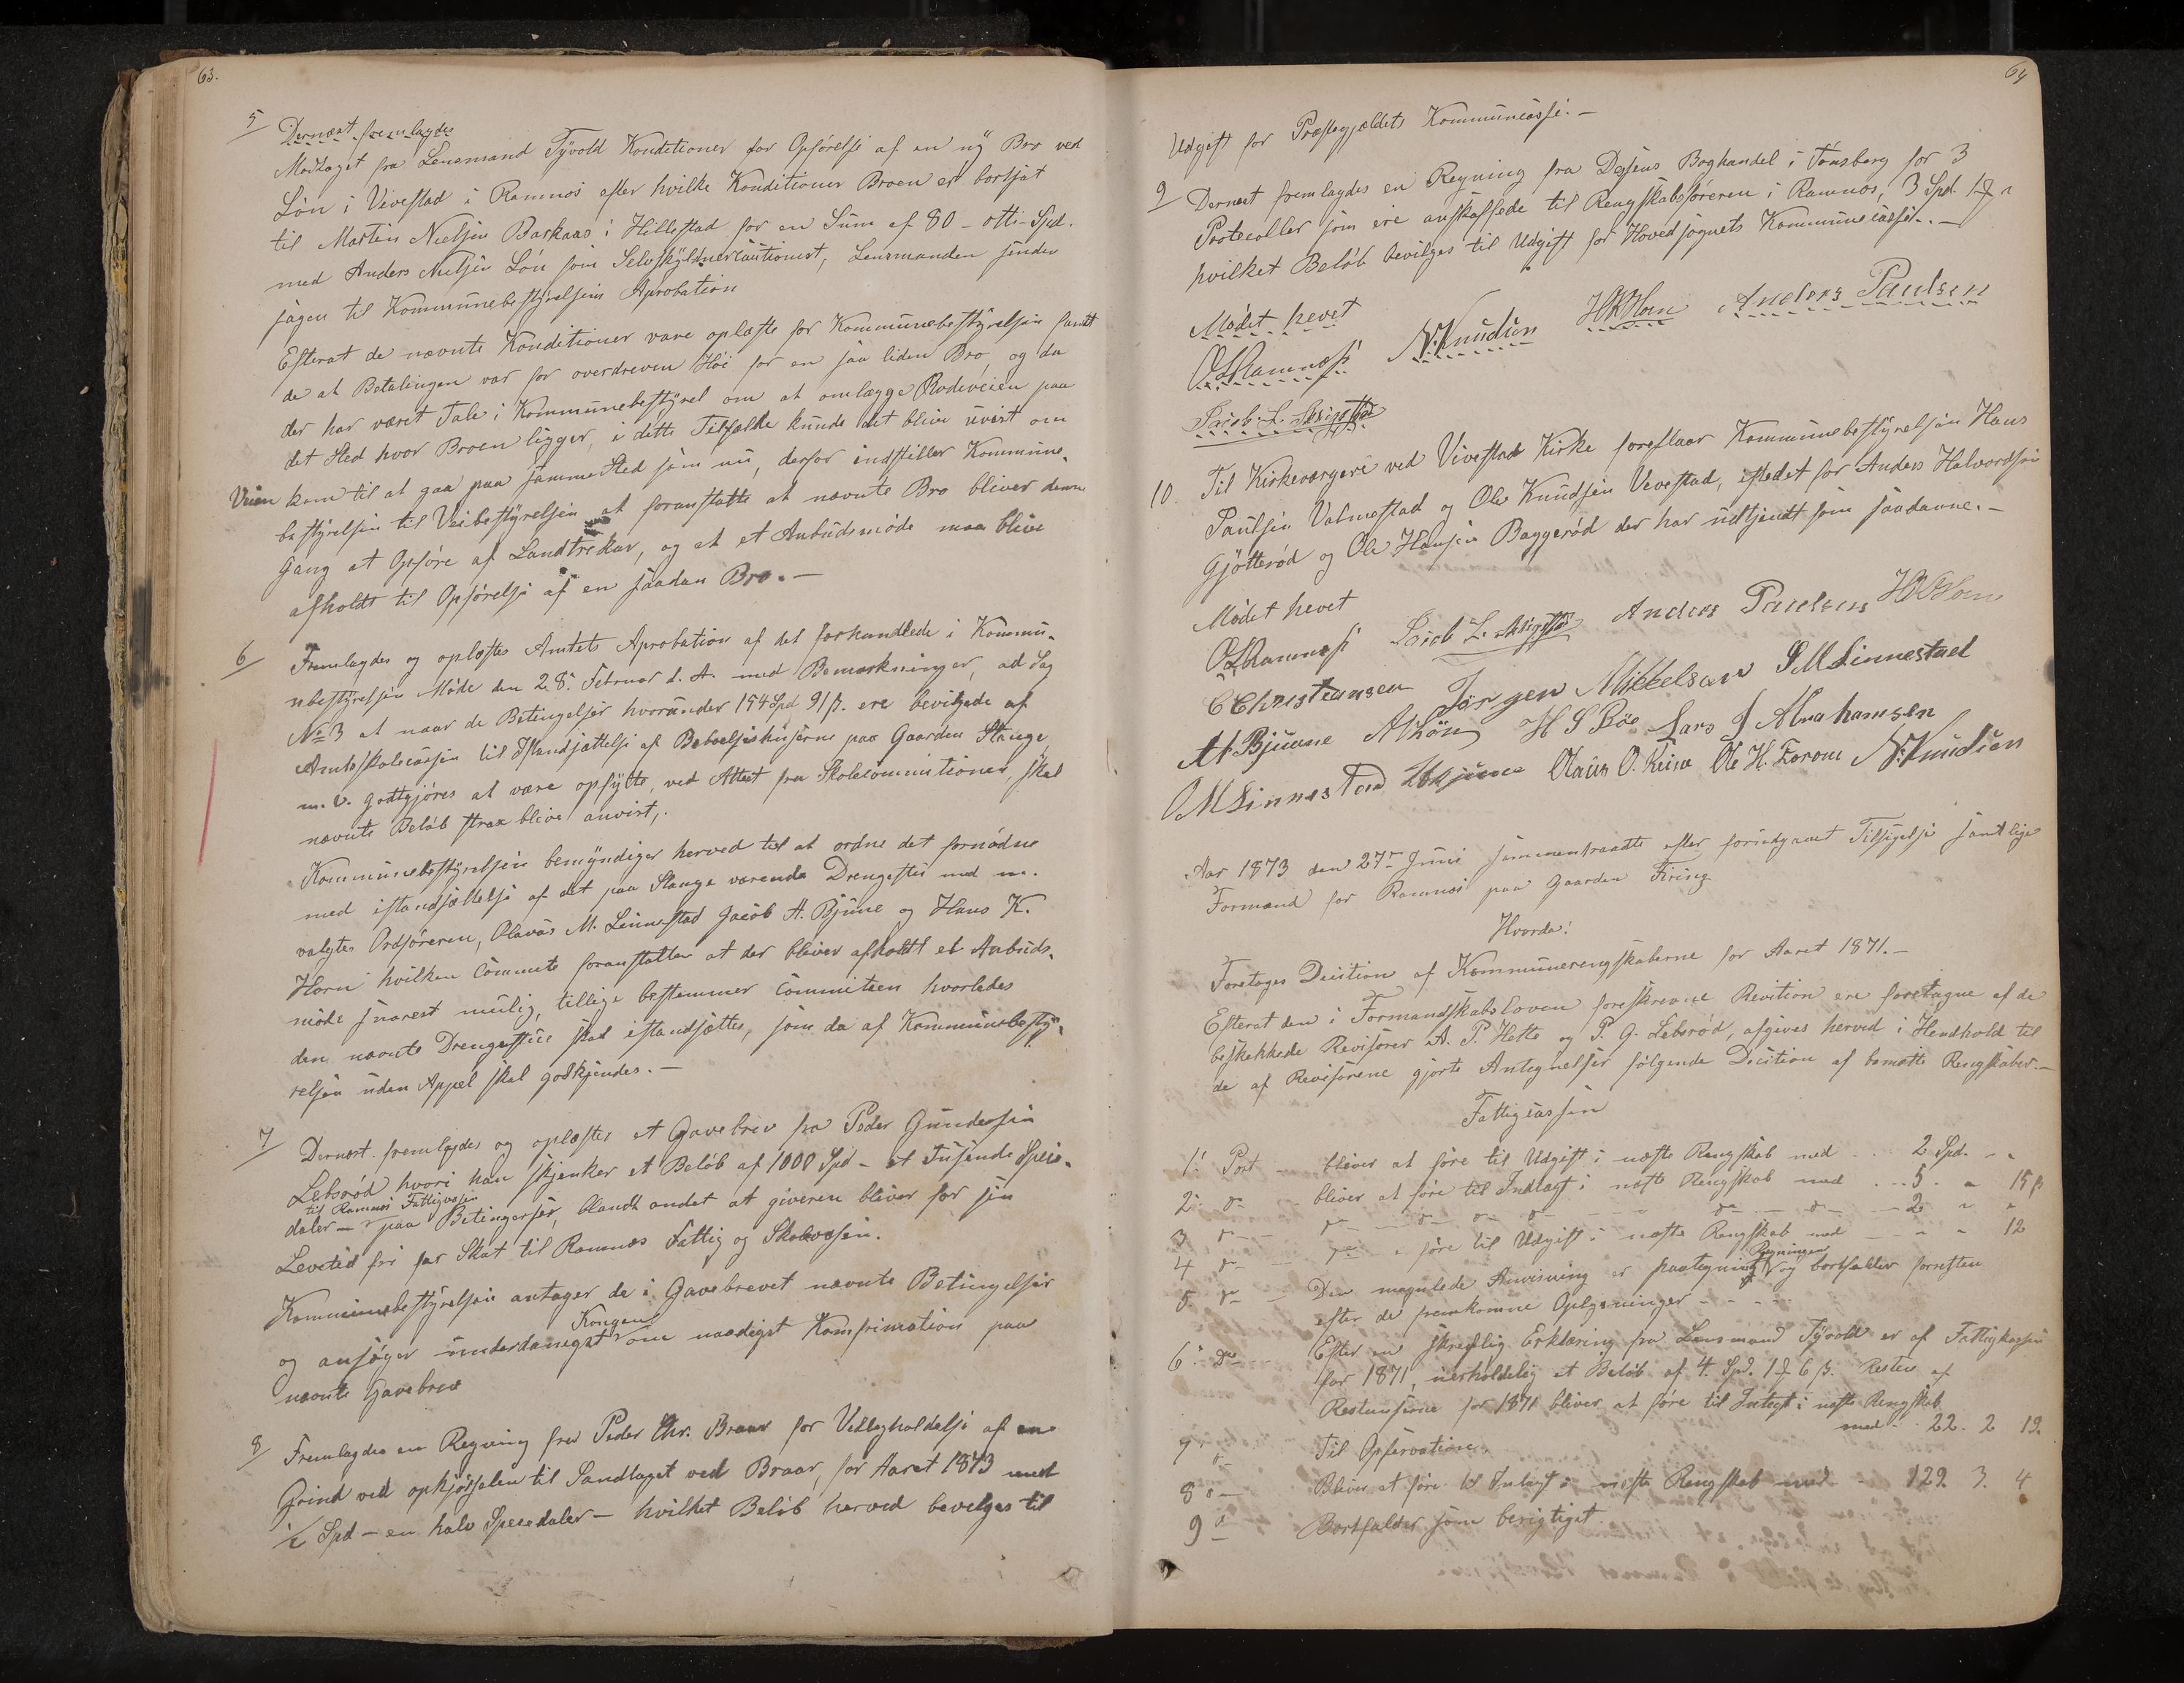 63.
5/ Dernæst fremlagdes
Modtaget fra Lensmand Tÿvold Konditioner for Opførelse af en nÿ Bro ved
Løn i Vivestad i Ramnæs efter hvilke Konditioner Broen er bortsat
til Martin Nielsen Barkaas i Hillestad for en Sum af 80 – otti Spd.
med Anders Nielsen Løn som Selvskÿldnercautionist, Lensmanden sender
sagen til Kommunebestÿrelsens Aprobation
Efterat de nævnte Konditioner vare oplæste for Kommunebestÿrelsen fandt
de at Betalingen var for overdreven Høi for en saa liden Bro, og da
der har været Tale i Kommunebestÿrel om at omlægge Rodeveien paa
det Sted hvor Broen ligger, i dette Tilfælde kunde det blive uvist om
Veien kom til at gaa paa samme Sted som nu, derfor indstiller Kommune-
bestÿrelsen til Veibestÿrelsen at foranstalte at nævnte Bro bliver denne
Gang at Opføre af Landtrekar, og at et Anbudsmøde maa blive
afholdt til Opførelse af en saadan Bro. –
6/ Fremlagdes og oplæstes Amtets Aprobation af det forhandlede i Kommu-
nebestÿrelsen Møde den 28. Februar d. A. med Bemærkninger, ad Sag
No 3 at naar de Betingelser hvorunder 154 Spd 91 β. ere bevilgede af
Amtsskolecassen til Istandsættelse af Beboelseshuserne paa Gaarden Stange
m. v. godtgjøres at være opfÿlte, ved Attest fra Skolecommitionen, skal
nævnte Beløb strax blive anvist,.
Kommunebestÿrelsen bemÿndiger herved til at ordne det fornødne
med istandsættelse af det paa Stange værende Drengestue med m.
valgtes Ordføreren, Olavus M. Linnestad Jacob A. Bjune og Hans K.
Horn hvilken Commite foranstalter at der bliver afholdt et Anbuds-
møde snarest mulig, tillige bestemmer Commiteen hvorledes
den nævnte Drengestue skal istandsættes, som da af Kommunebestÿ-
relsen uden Appel skal godkjendes. –
7/ Dernæst fremlagdes og oplæstes et Gavebrev fra Peder Gundersen
Lebsrød hvori han skjenker et Beløb af 1000 Spd – et Tusende Specie-
til Ramnæs Fattigvæsen
daler – paa Betingerser, blandt andet at giveren bliver for sin
Levetid fri for Skat til Ramnæs Fattig og Skolevæsen.
Kommunebestÿrelsen antager de i Gavebrevet nævnte Betingelser
Kongen
og ansøger underdanigst om naadigst Komfirmation paa
nævnte Gavebrev
8/ Fremlagdes en Regning fra Peder Chr. Braar for Vedligholdelse af en
Grind ved opkjørselen til Sandtaget ved Braar, for Aaret 1873 med
1/2 Spd – en halv Speciedaler – hvilket Beløb herved bevilges til
64
Udgift for Præstegjældets Kommunecasse. –
9/ Dernæst fremlagdes en Regning fra Boghandel i Tønsberg for 3
Protocoller som ere anskaffede til Rengskabsføreren i Ramnæs, 3 Spd. 1
hvilket Beløb bevilges til Udgift for Hovedsognets Kommunecasse. –
Mødet hevet
O L Ramnæs N. Knudsen H K Horn Anders Paulsen
Jacob L.
10. Til Kirkeværgere ved Vivestad Kirke foreslaar Kommunebestÿrelsen Hans
Paulsen Valmestad og Ole Knudsen Vivestad, istedet for Anders Halvordsen
Gjøtterød og Ole Hansen Baggerød der har udtjendt som saadanne. –
Mødet hevet
O L Ramnæs Jacob L. Anders Paulsen H K Horn
C Christiansen Jørgen Mikkelsen S M Linnestad
A Bjuene A Løn H S Bøe Lars J Abrahamsen
O M Linnestad Olaus O. Ole H. N. Knudsen
Aar 1873 den 27de Juni sammentraadte efter forudgaaet Tilsigelse samtlige
Formænd for Ramnæs paa Gaarden Firing
Hvorda:
Foretoges Decition af Kommunerengskaberne for Aaret 1871. –
Efterat den i Formandskabsloven foreskrevne Revition ere foretagne af de
beskikkede Revisorer A. P. Hette og P. G. Lebsrød, afgives herved i Hendhold til
de af Revisorene gjorte Antegnelser følgende Decition af bemelte Rengskaber. –
Fattigcassen
1: Post – bliver at føre til Udgift i næste Rengskab med . . 2 Spd. " "
2: do – bliver at føre til Indtægt i næste Rengskab med . . . 5. " 15 β
3 do – – do – do do do – – – do – do – – 2 " "
4 do – do " føre til Udgift i næste Rengskab med – " " 12
Regningen
5. do – Den manglede Anvisning er paategning og bortfalder forresten
efter de fremkomne Oplysninger – – –
6: do Efter en skreflig Erklæring fra Lensmand Tÿvold er af Fattigkassen
for 1871, uerholdelig et Beløb af 4. Spd. 1 6 β. Resten af
Restancerne for 1871 bliver at føre til Indtegt i næste Rengskab
med . . 22. 2 19.
7 do – Til Opservation.
8 do – Bliver at føre til Indtegt i næste Rengskab med – 129. 3. 4
9 do – Bortfalder som berigtiget.